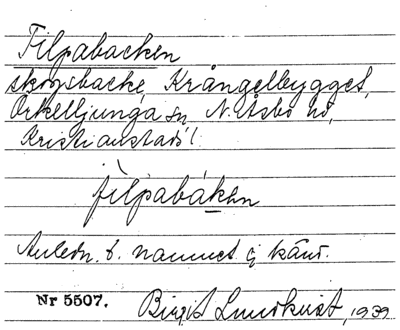 Filpabacken
skogsbacke, Krångelbygget,
Örkelljunga sn, N. Åsbo hd,
Kristianstads l.
filpabákən
Anledn. t. namnet ej känd.
Nr 5507. Birgit Lundkvist, 1939